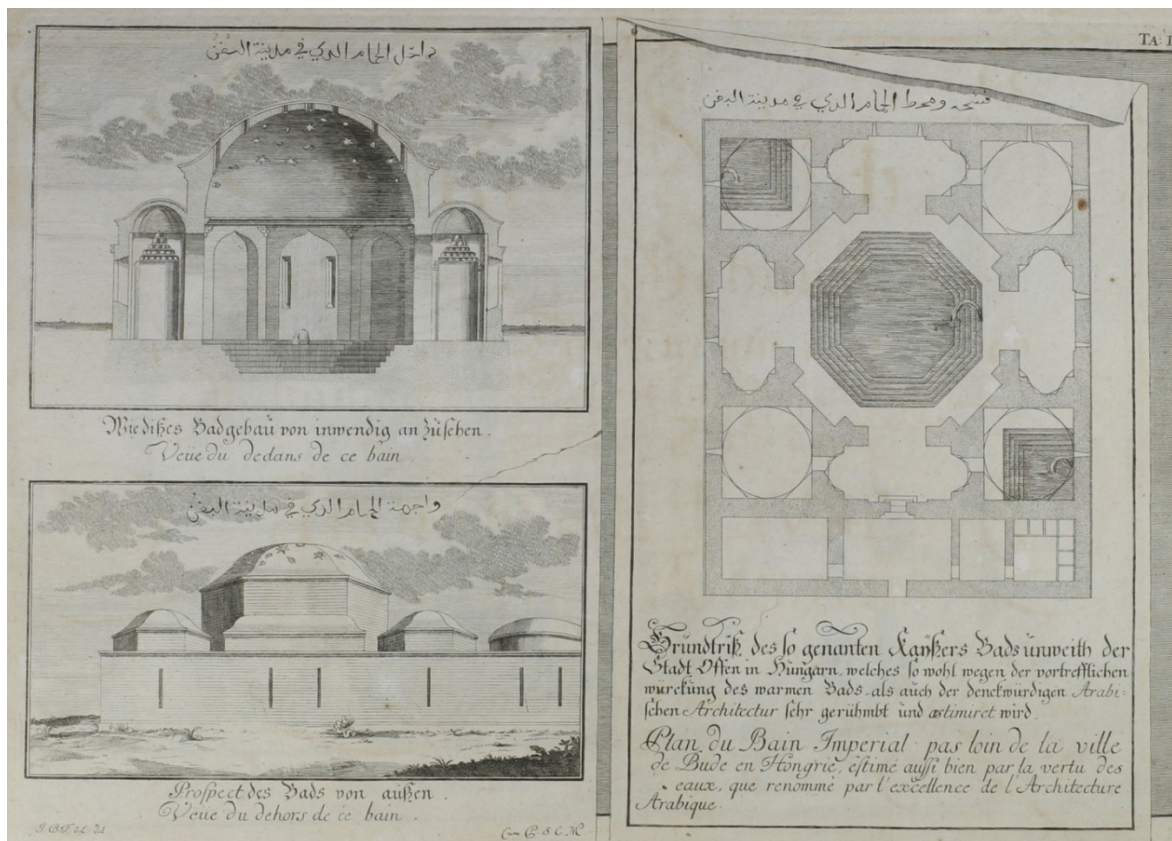 داخل الحمام الدي في مدينة البفن
Wie dißes Badgebaü von inwendig an züsehen.
Veüe du dedans de ce bain
واجهة الحمام الدي في مدينة البفن
Prospect des Bads von aüßen.
Veüe du dehors de ce bain.
TA: I
ومحط الحمام الدي في مدينة البفن
Gründtriß des so genanten Kaÿßers Bads ünweith der
Stadt Offen in Hüngarn, welches so wohl wegen der vortrefflichen
würckung des warmen Bads, als auch der denckwürdigen Arabi-
schen Architectur sehr gerühmbt und æstimiret wird.
Plan du Bain Imperial pas loin de la ville
de Bude en Hongrie, estimé aussi bien par la vertu des
eaux, que renommé par l'excellence de l'Architecture
Arabique.